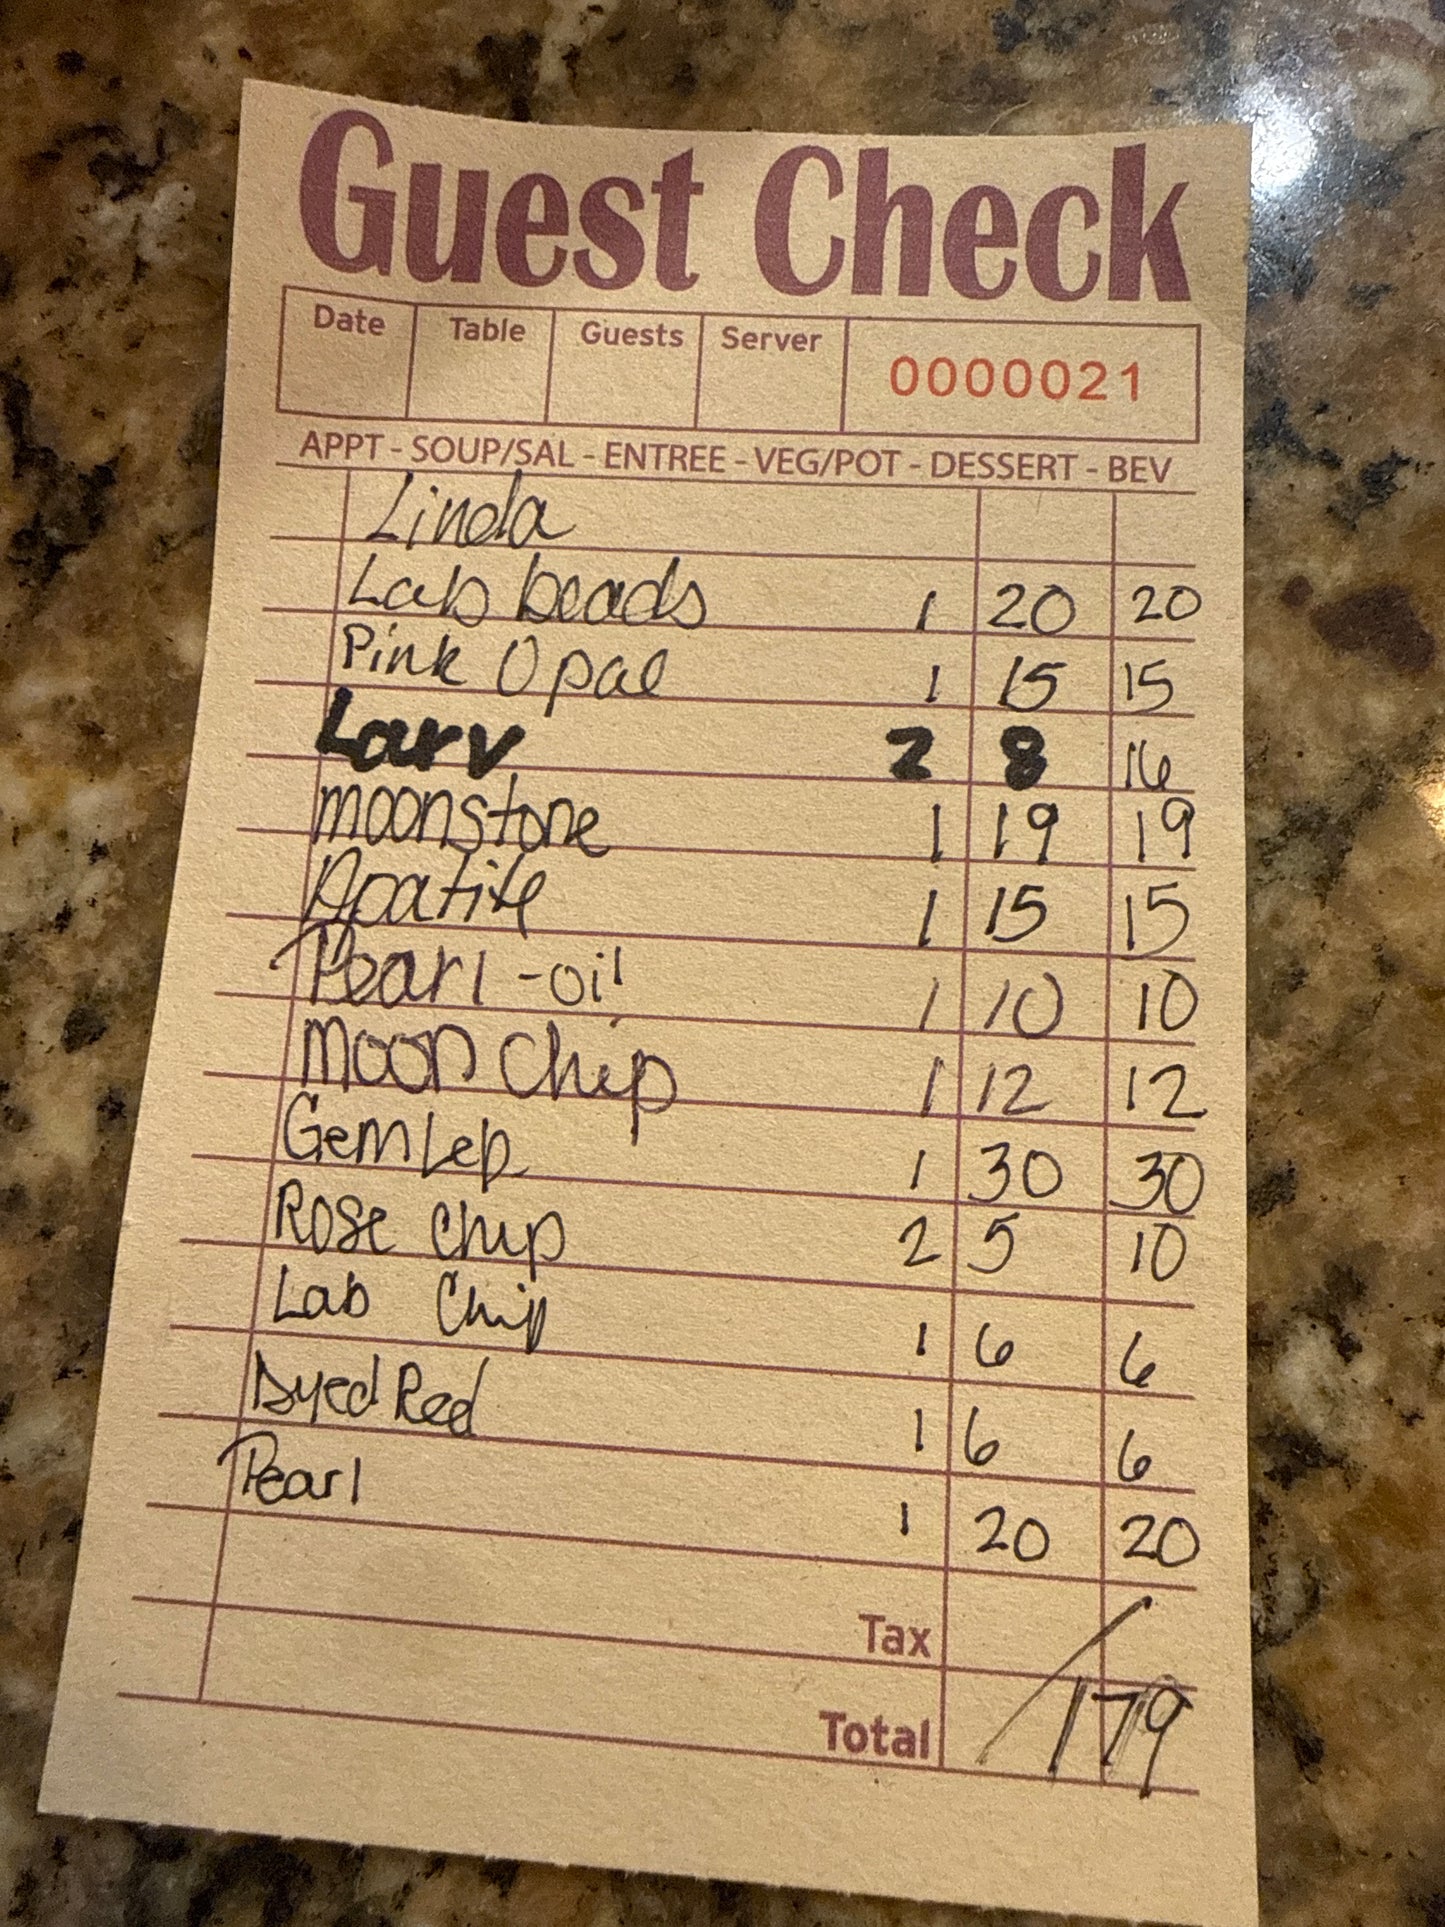 Guest Check
Date Table Guests Server 0000021
APPT - SOUP/SAL - ENTREE - VEG/POT - DESSERT - BEV
Linda
Lab beads 1 20 20
Pink Opal 1 15 15
Larv 2 8 16
moonstone 1 19 19
Apatite 1 15 15
Pearl - oil 1 10 10
Moon Chip 1 12 12
Gem Lep 1 30 30
Rose Chip 2 5 10
Lab Chip 1 6 6
Dyed Red 1 6 6
Pearl 1 20 20
Tax
Total 179